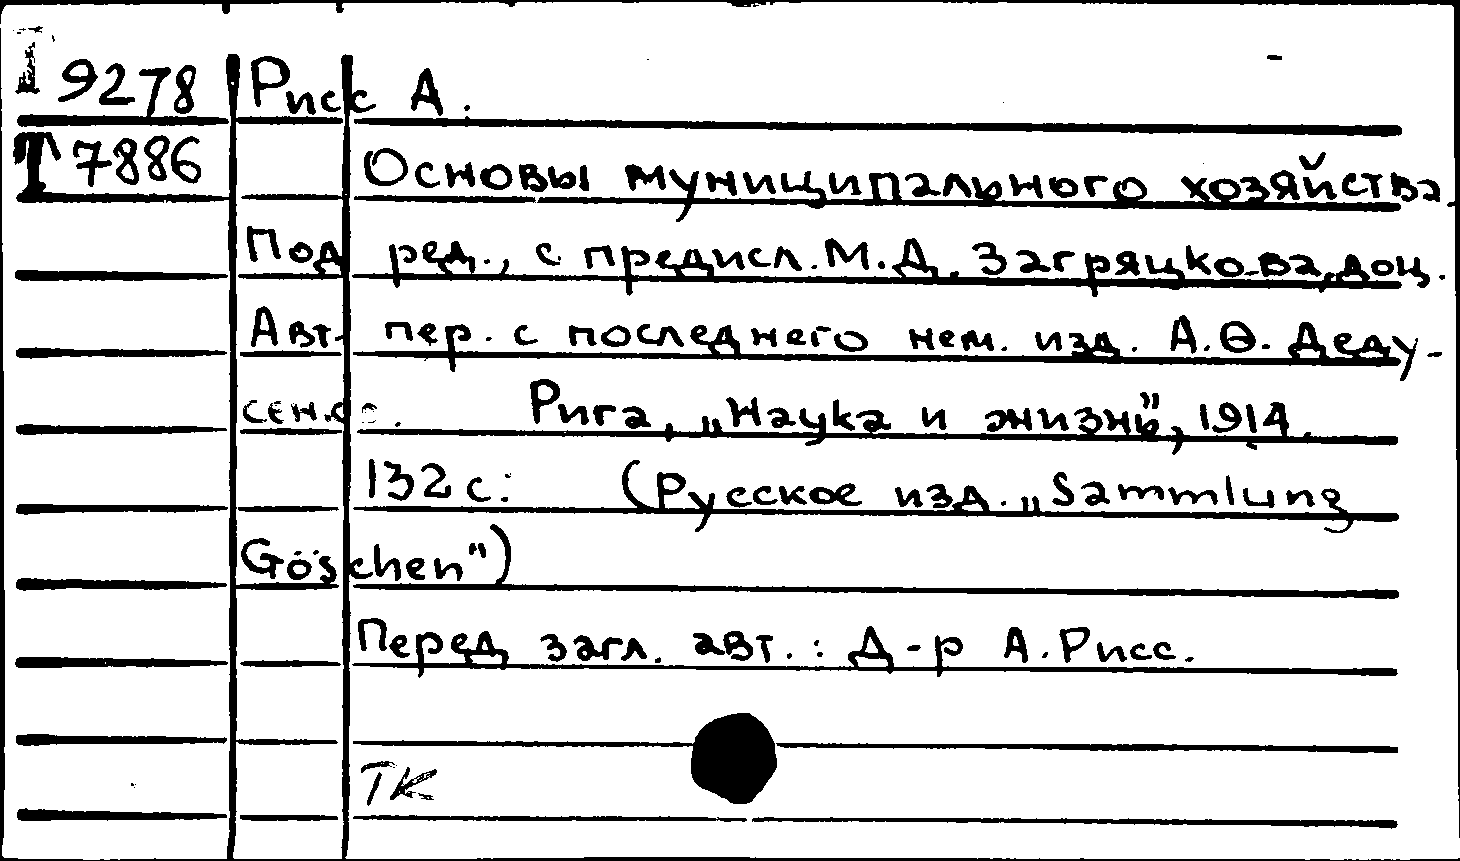 I 9278 Рисс А.
T 7886 Основы муниципального хозяйства.
Под ред., с предисл. М.Д. Загряцкова, доц.
Авт. пер. с последнего нем. изд. А.Ѳ. Деду-
сенко. Рига, „Наука и жизнь", 1914.
132 с. (Русское изд. „Sammlung
Göschen")
Перед загл. авт.: Д-р А. Рисс.
ТК